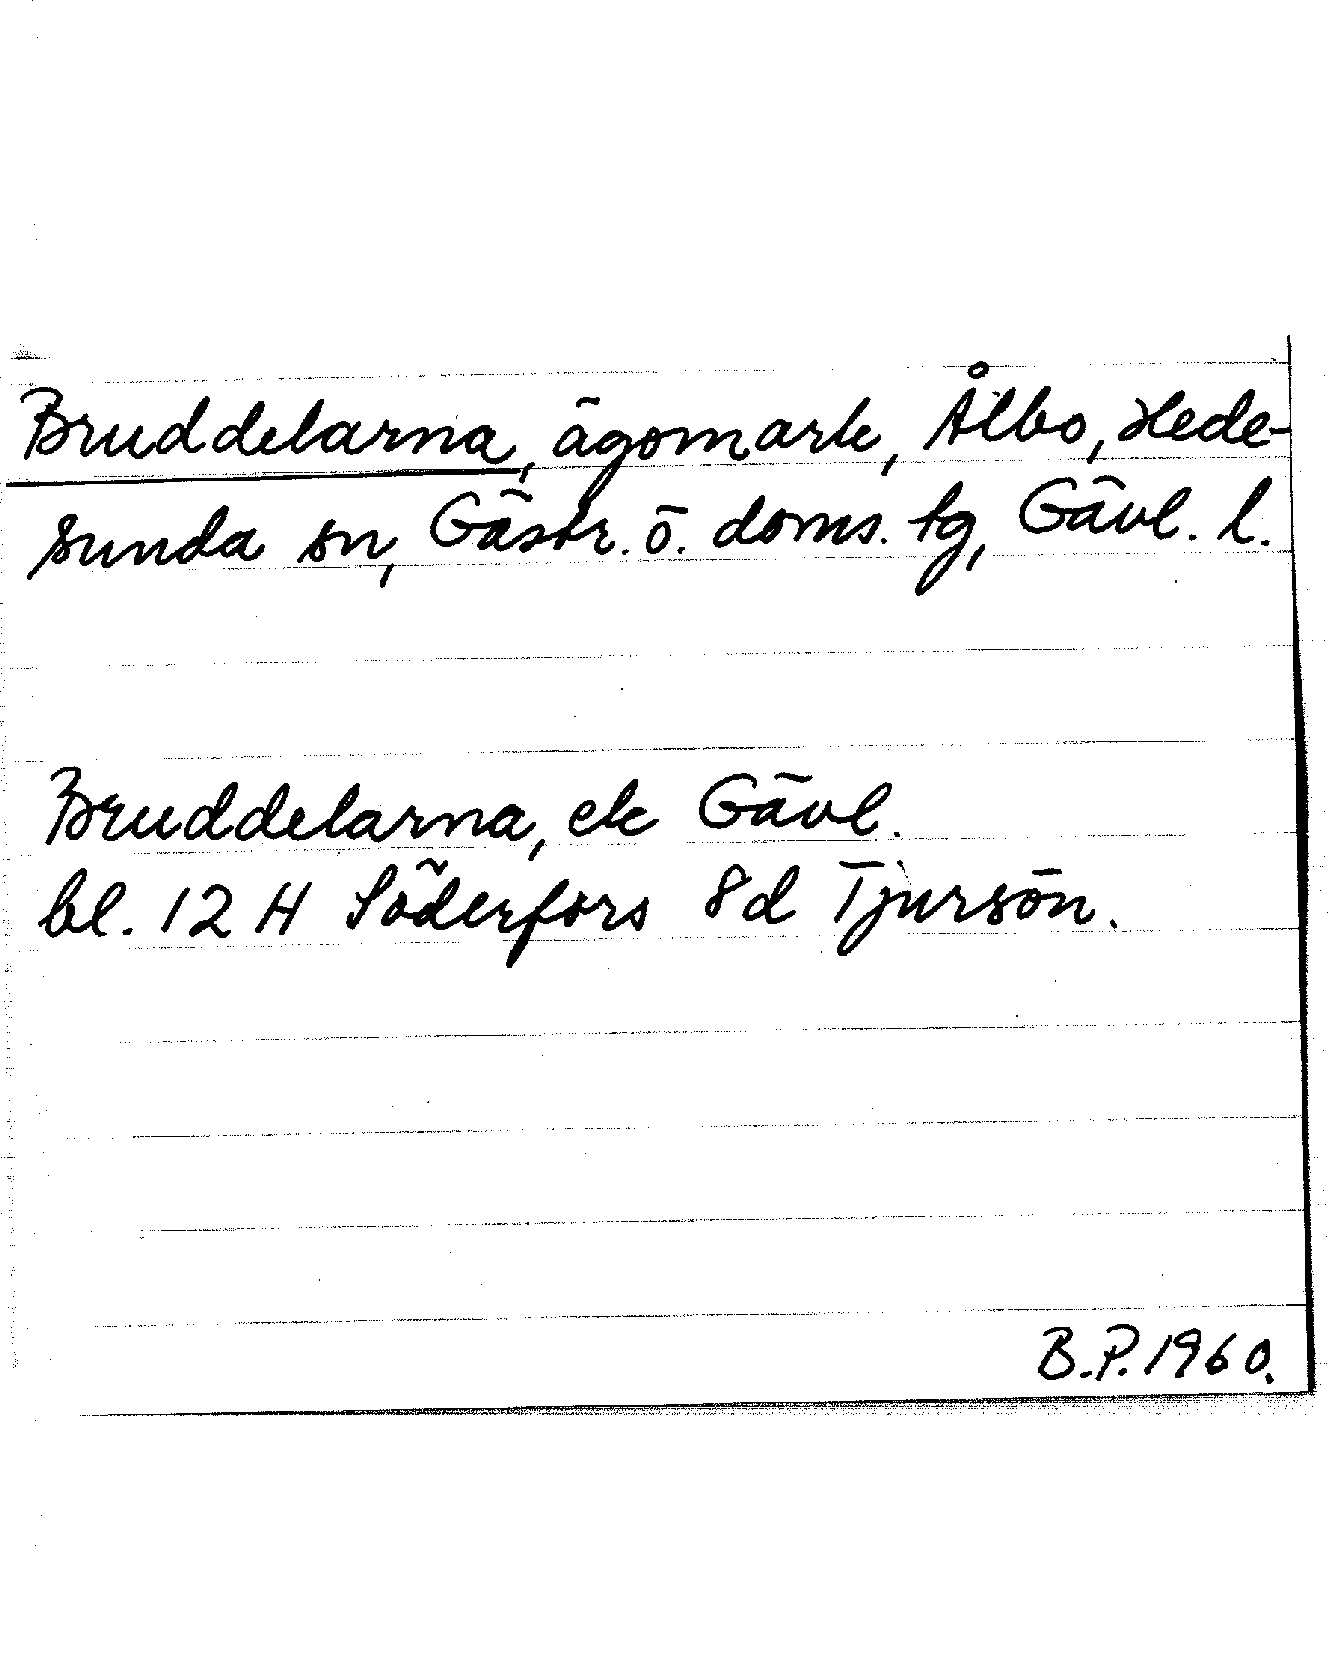 Bruddelarna, ägomark, Ålbo, Hede-
sunda sn, Gästr. ö. doms. tg, Gävl. l.
Bruddelarna, ek Gävl.
bl. 12 H Söderfors 8d Tjursön.
B.P. 1960.